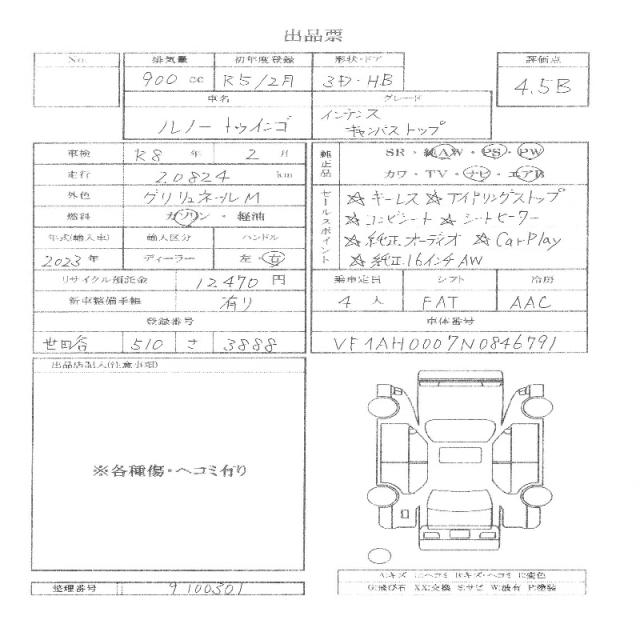 出品票
No 排気量 初年度登録 形状・ドア 評価点
900 cc R5/2月 3ド・HB 4.5B
車名 グレード
ルノー トゥインゴ インテンス
キャンバストップ
車検 R8 年 2 月
走行 20824 km
外色 グリリュネールM
燃料 ガソリン・軽油
年式(輸入車) 輸入区分 ハンドル
2023年 ディーラー 左・右
リサイクル預託金 12470 円
新車整備手帳 有り
登録番号
世田谷 510 さ 3888
純正品 SR・純AW・PS・PW
カワ・TV・ナビ・エアB
セールスポイント ☆キーレス ☆アイドリングストップ
☆コンビシート ☆シートヒーター
☆純正オーディオ ☆CarPlay
☆純正16インチAW
乗車定員 シフト 冷房
4 人 FAT AAC
車体番号
VF1AH0007N0846791
出品店記入(注意事項)
※各種傷・ヘコミ有り
整理番号 9100301
A:キズ U:ヘコミ B:キズ・ヘコミ C:変色
G:飛び石 XX:交換 S:サビ W:波有 P:塗装